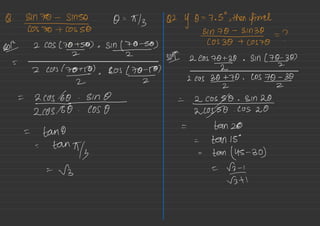 Q sin 7θ − sin 5θ / cos 7θ + cos 5θ θ = π/3
Solⁿ
= 2 cos (7θ+5θ)/2 . sin (7θ−5θ)/2
2 cos (7θ+5θ)/2 . cos (7θ−5θ)/2
= 2 cos 6θ . sin θ
2 cos 6θ . cos θ
= tan θ
= tan π/3
= √3
Q2 if θ = 7.5°, then find
sin 7θ − sin 3θ / cos 3θ + cos 7θ = ?
Solⁿ
2 cos 7θ+3θ/2 . sin (7θ−3θ)/2
2 cos 3θ+7θ/2 . cos 7θ−3θ/2
= 2 cos 5θ . sin 2θ
2 cos 5θ cos 2θ
= tan 2θ
= tan 15°
= tan (45−30)
= √3−1
√3+1